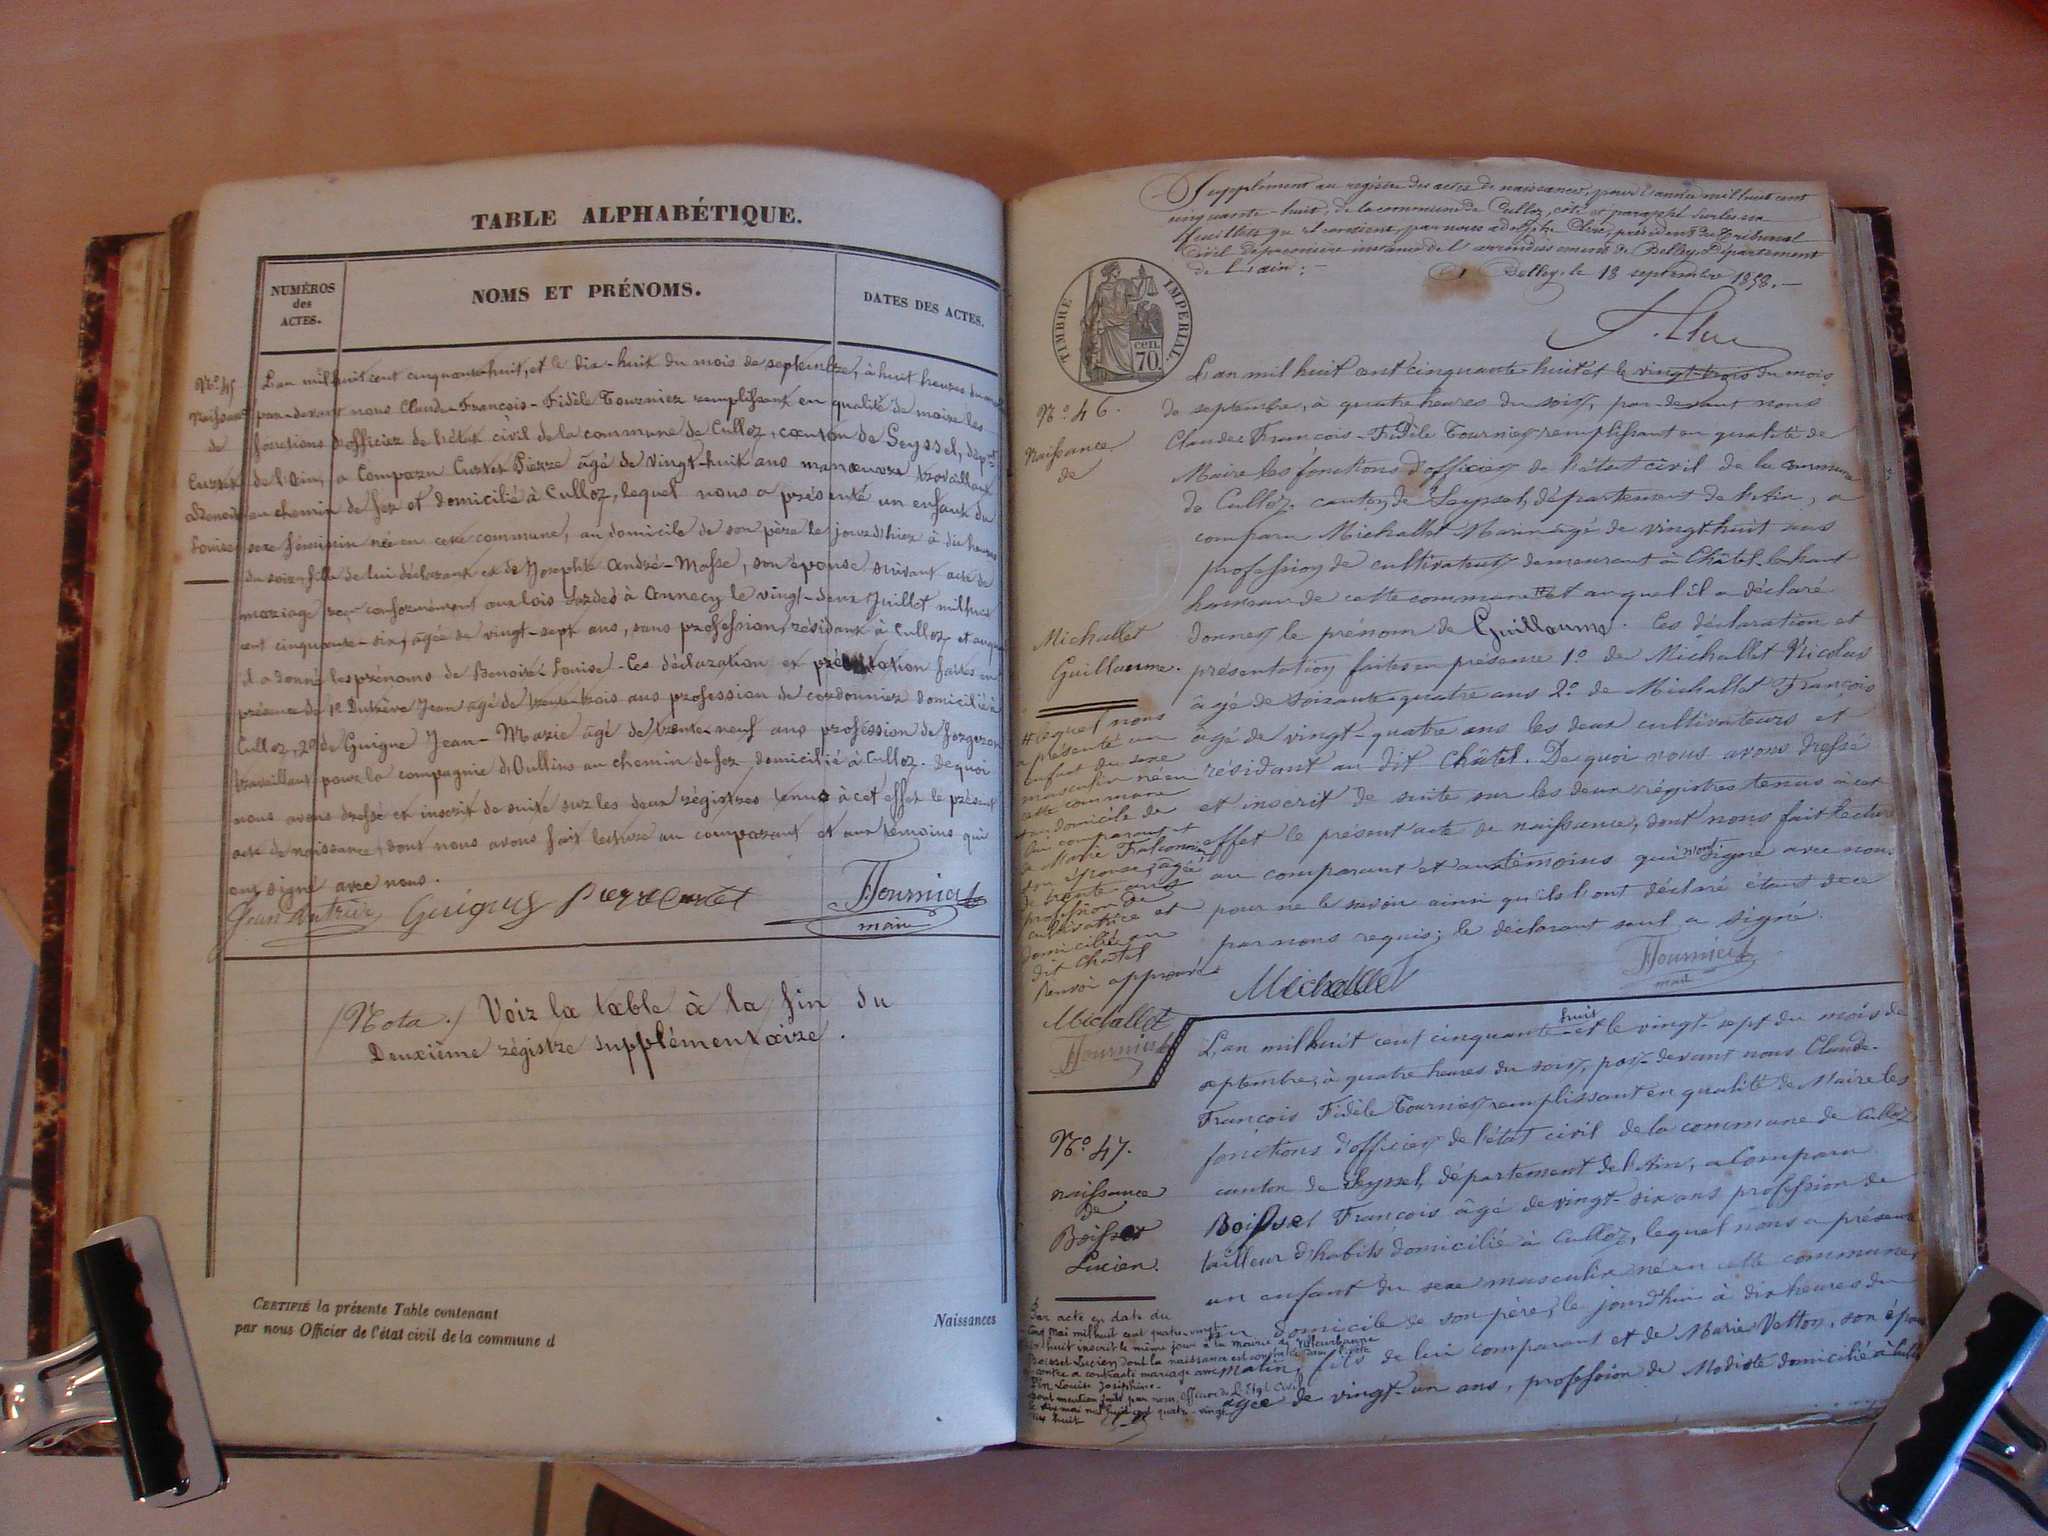 TABLE ALPHABÉTIQUE.
NUMÉROS
des
ACTES.
NOMS ET PRÉNOMS.
DATES DES ACTES.
No 45
Naissance
de
Curtet
Benoite
Louise
L'an mil huit cent cinquante-huit, et le dix-huit du mois de septembre, à huit heures du
par-devant nous Claude-François-Fidèle Tournier remplissant en qualité de maire les
fonctions d'officier de l'état civil de la commune de Culloz, canton de Seyssel, dépt
de l'Ain, a comparu Curtet Pierre âgé de vingt-huit ans manœuvre travaillant
au chemin de fer et domicilié à Culloz, lequel nous a présenté un enfant du
sexe féminin née en cette commune, au domicile de son père le jour d'hier à dix heures
du soir, fille de lui déclarant et de Josephte André-Masse, son épouse suivant acte de
mariage reçu conformément aux lois sardes à Annecy le vingt-deux Juillet mil huit
cent cinquante-six, âgée de vingt-sept ans, sans profession, résidant à Culloz et auquel
il a donné les prénoms de Benoite Louise. Ces déclaration et présentation faites en
présence de 1o Dutrève Jean âgé de trente-trois ans profession de cordonnier domicilié à
Culloz, 2o de Guigue Jean-Marie âgé de trente-neuf ans profession de forgeron
travaillant pour la compagnie d'Oullins au chemin de fer, domicilié à Culloz. De quoi
nous avons dressé et inscrit de suite sur les deux régistres tenus à cet effet le présent
acte de naissance, dont nous avons fait lecture au comparant et aux témoins qui
ont signé avec nous.
Jean Dutrève Guigue Pierre Curtet FTournier
maire
(Nota.) Voir la table à la fin du
Deuxième régistre supplémentaire.
CERTIFIÉ la présente Table contenant
Naissances
par nous Officier de l'état civil de la commune d
Supplément au registre des actes de naissance, pour l'année mil huit cent
cinquante-huit, de la commune de Culloz, coté et paraphé sur les six
feuillets qu'il contient, par nous adolphe Clerc, président du Tribunal
Civil de première instance de l'arrondissement de Belley, Département
de l'ain :-
Belley, le 18 septembre 1858.-
TIMBRE IMPÉRIAL
cen.
70.
No 46.
Naissance
de
Michallet
Guillaume.
L'an mil huit cent cinquante-huit et le vingt-trois du mois
de septembre, à quatre heures du soir, par-devant nous
Claude François-Fidèle Tournier remplissant en qualité de
Maire les fonctions d'officier de l'état civil de la commune
de Culloz canton de Seyssel, département de l'Ain, a
comparu Michallet Marin âgé de vingt huit ans
profession de cultivateur demeurant à Châtel-le-haut
hameau de cette commune # et auquel il a déclaré
donner le prénom de Guillaume. Ces déclaration et
présentation faites en présence 1o de Michallet Nicolas
âgé de soixante-quatre ans 2o de Michallet François
âgé de vingt-quatre ans les deux cultivateurs et
résidant au dit Châtel. De quoi nous avons dressé
et inscrit de suite sur les deux régistres tenus à cet
effet le présent acte de naissance, dont nous fait lecture
au comparant et aux témoins qui n'ont signé avec nous
pour ne le savoir ainsi qu'ils l'ont déclaré étant de ce
par nous requis; le déclarant seul a signé.
# lequel nous
a présenté un
enfant du sexe
masculin né en
cette commune
au domicile de
lui comparant et
de Marie Falconnier
son épouse, âgée
de trente ans
profession de
cultivatrice et
domiciliée au
dit Châtel
Renvoi approuvé
Michallet
FTournier
Michallet
FTournier
maire
No 47.
naissance
de
Boisset
Lucien.
L'an mil huit cent cinquante-huit et le vingt-sept du mois de
septembre, à quatre heures du soir, par-devant nous Claude-
François Fidèle Tournier remplissant en qualité de Maire les
fonctions d'officier de l'état civil de la commune de Culloz
canton de Seyssel, département de l'Ain, a comparu
Boisset François âgé de vingt-six ans profession de
tailleur d'habits domicilié à Culloz, lequel nous a présenté
un enfant du sexe masculin né en cette commune,
au domicile de son père, le jour d'hier à dix heures du
matin, fils de lui comparant et de Marie Vetton, son épouse
âgée de vingt-un ans, profession de Modiste domicilié à Culloz
Par acte en date du
cinq mai mil huit cent quatre-vingt
dix huit inscrit le même jour à la mairie de Villeurbanne
Boisset Lucien dont la naissance est constatée dans l'acte
ci-contre a contracté mariage avec
Pin Louise Joséphine.
dont mention faite par nous, officier de l'État Civil
le dix mai mil huit cent quatre-vingt
dix huit